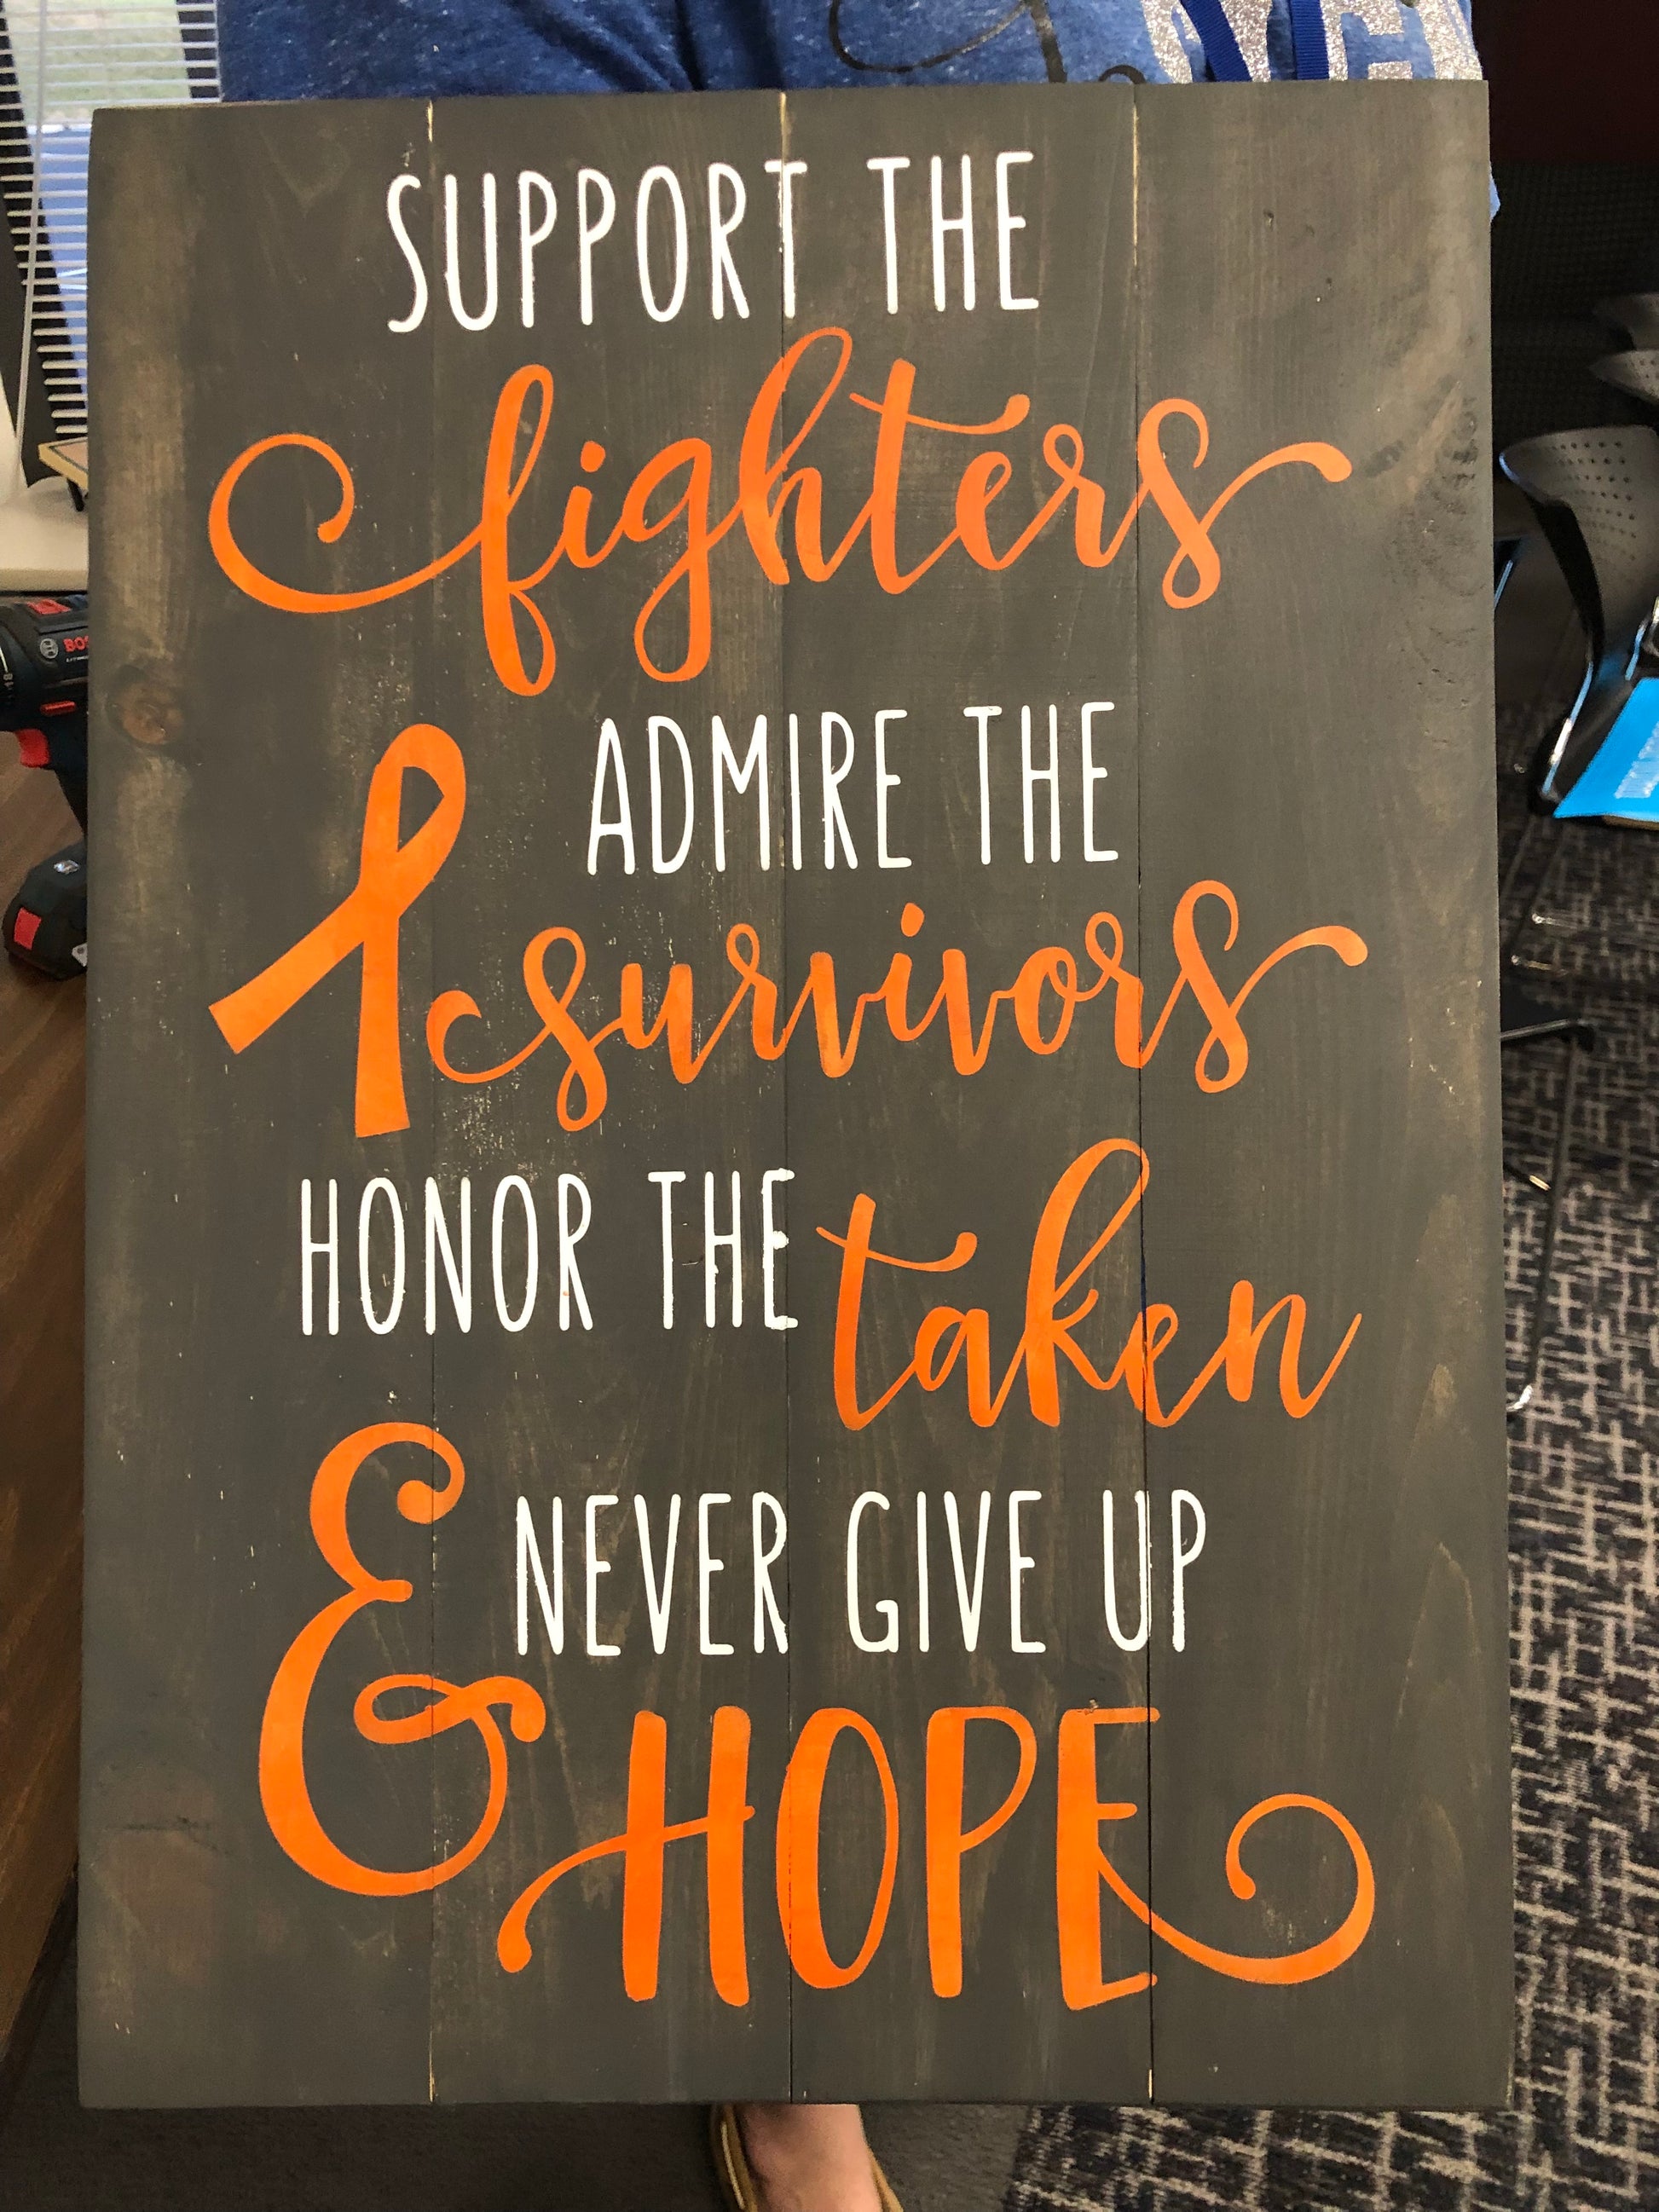 SUPPORT THE
fighters
ADMIRE THE
survivors
HONOR THE taken
& NEVER GIVE UP
HOPE